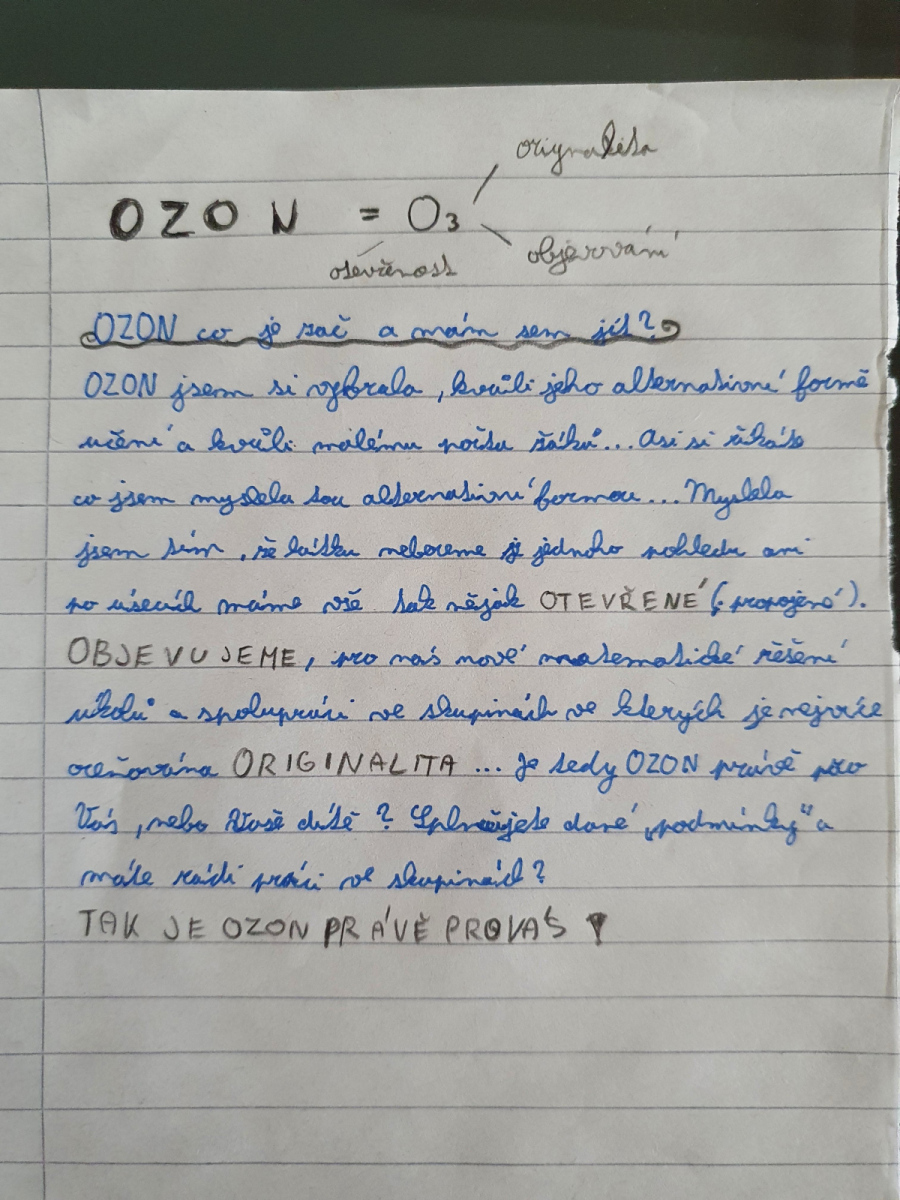 originalita
OZON = O3
objevování
otevřenost
OZON co je zač a mám sem jít?
OZON jsem si vybrala, kvůli jeho alternativní formě
učení a kvůli malému počtu žáků... Asi si říkáte
co jsem myslela tou alternativní formou... Myslela
jsem tím, že látku nebereme z jednoho pohledu ani
po úsecích máme vše tak nějak OTEVŘENÉ (: propojené).
OBJEVUJEME, pro nás nové matematické řěšení
úkolů a spolupráci ve skupinách ve kterých je nejvíce
oceňována ORIGINALITA ... Je tedy OZON právě pro
Vás, nebo Vaše dítě? Splňujete dané „podmínky" a
máte rádi práci ve skupinách?
TAK JE OZON PRÁVĚ PRO VÁS !